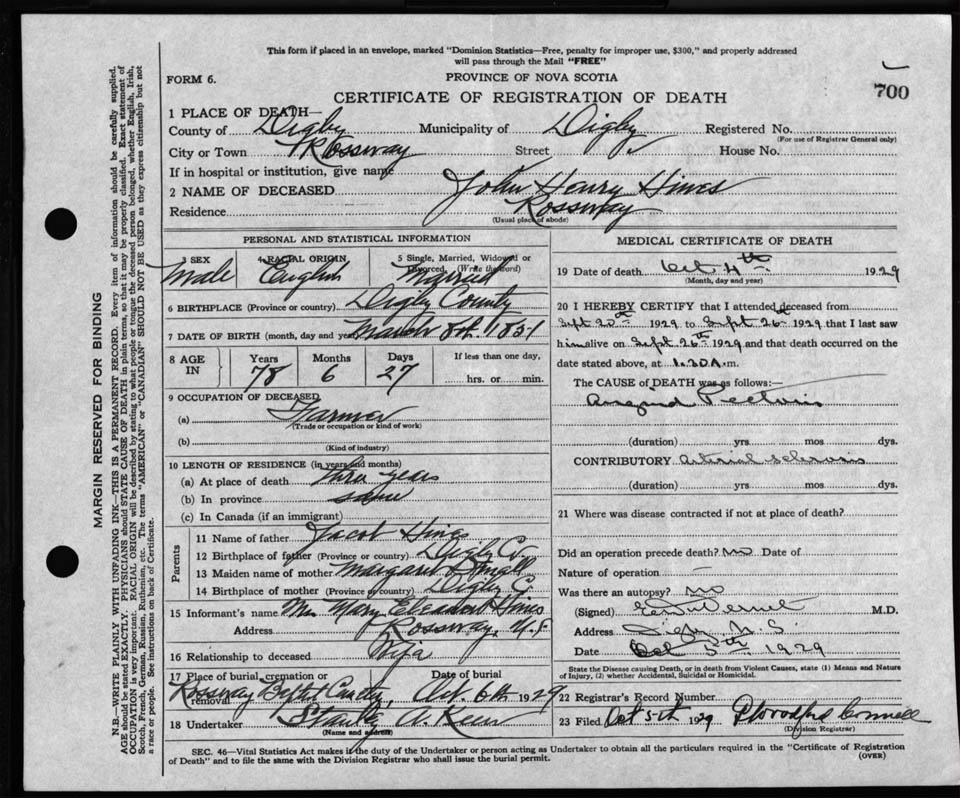 This form if placed in an envelope, marked "Dominion Statistics—Free, penalty for improper use, $300," and properly addressed
will pass through the Mail "FREE"
FORM 6.
PROVINCE OF NOVA SCOTIA
700
CERTIFICATE OF REGISTRATION OF DEATH
1 PLACE OF DEATH—
County of Digby Municipality of Digby Registered No.
(For use of Registrar General only)
City or Town Rossway Street House No.
If in hospital or institution, give name
2 NAME OF DECEASED John Henry Hines
Residence Rossway
(Usual place of abode)
PERSONAL AND STATISTICAL INFORMATION
3 SEX 4 RACIAL ORIGIN 5 Single, Married, Widowed or Divorced, (Write the word)
Male English Married
6 BIRTHPLACE (Province or country) Digby County
7 DATE OF BIRTH (month, day and year) March 8th 1851
8 AGE IN Years Months Days If less than one day,
78 6 27 hrs. or min.
9 OCCUPATION OF DECEASED
(a) Farmer
(Trade or occupation or kind of work)
(b)
(Kind of industry)
10 LENGTH OF RESIDENCE (in years and months)
(a) At place of death three years
(b) In province same
(c) In Canada (if an immigrant)
Parents
11 Name of father Jacob Hines
12 Birthplace of father (Province or country) Digby Co.
13 Maiden name of mother Margaret
14 Birthplace of mother (Province or country) Digby Co.
15 Informant's name Mrs Mary Eleanor Hines
Address Rossway, N.S.
16 Relationship to deceased Wife
17 Place of burial, cremation or removal Date of burial
Rossway Baptist Oct. 6th 1929
18 Undertaker
(Name and address)
MEDICAL CERTIFICATE OF DEATH
19 Date of death Oct 4th 1929
(Month, day and year)
20 I HEREBY CERTIFY that I attended deceased from
Sept 20th 1929 to Sept 26th 1929 that I last saw
him alive on Sept 26th 1929 and that death occurred on the
date stated above, at 1.30 A.m.
The CAUSE of DEATH was as follows:—
Angina Pectoris
(duration) yrs mos dys.
CONTRIBUTORY arterial sclerosis
(duration) yrs mos dys.
21 Where was disease contracted if not at place of death?
Did an operation precede death? no Date of
Nature of operation —
Was there an autopsy? no
(Signed) M.D.
Address Digby N.S.
Date Oct 5th 1929
State the Disease causing Death, or in death from Violent Causes, state (1) Means and Nature
of Injury, (2) whether Accidental, Suicidal or Homicidal.
22 Registrar's Record Number
23 Filed Oct 5th 1929
(Division Registrar)
SEC. 46—Vital Statistics Act makes it the duty of the Undertaker or person acting as Undertaker to obtain all the particulars required in the "Certificate of Registration
of Death" and to file the same with the Division Registrar who shall issue the burial permit.
(OVER)
MARGIN RESERVED FOR BINDING
N.B.—WRITE PLAINLY WITH UNFADING INK—THIS IS A PERMANENT RECORD. Every item of information should be carefully supplied.
AGE should be stated EXACTLY. PHYSICIANS should STATE CAUSE OF DEATH in plain terms, so that it may be properly classified. Exact statement of
OCCUPATION is very important. RACIAL ORIGIN will be described by stating to what people or tongue the deceased person belonged, whether English, Irish,
Scotch, French, German, Russian, Ruthenian, etc. The terms "AMERICAN" or "CANADIAN" SHOULD NOT BE USED as they express citizenship but not
a race or people. See instructions on back of Certificate.